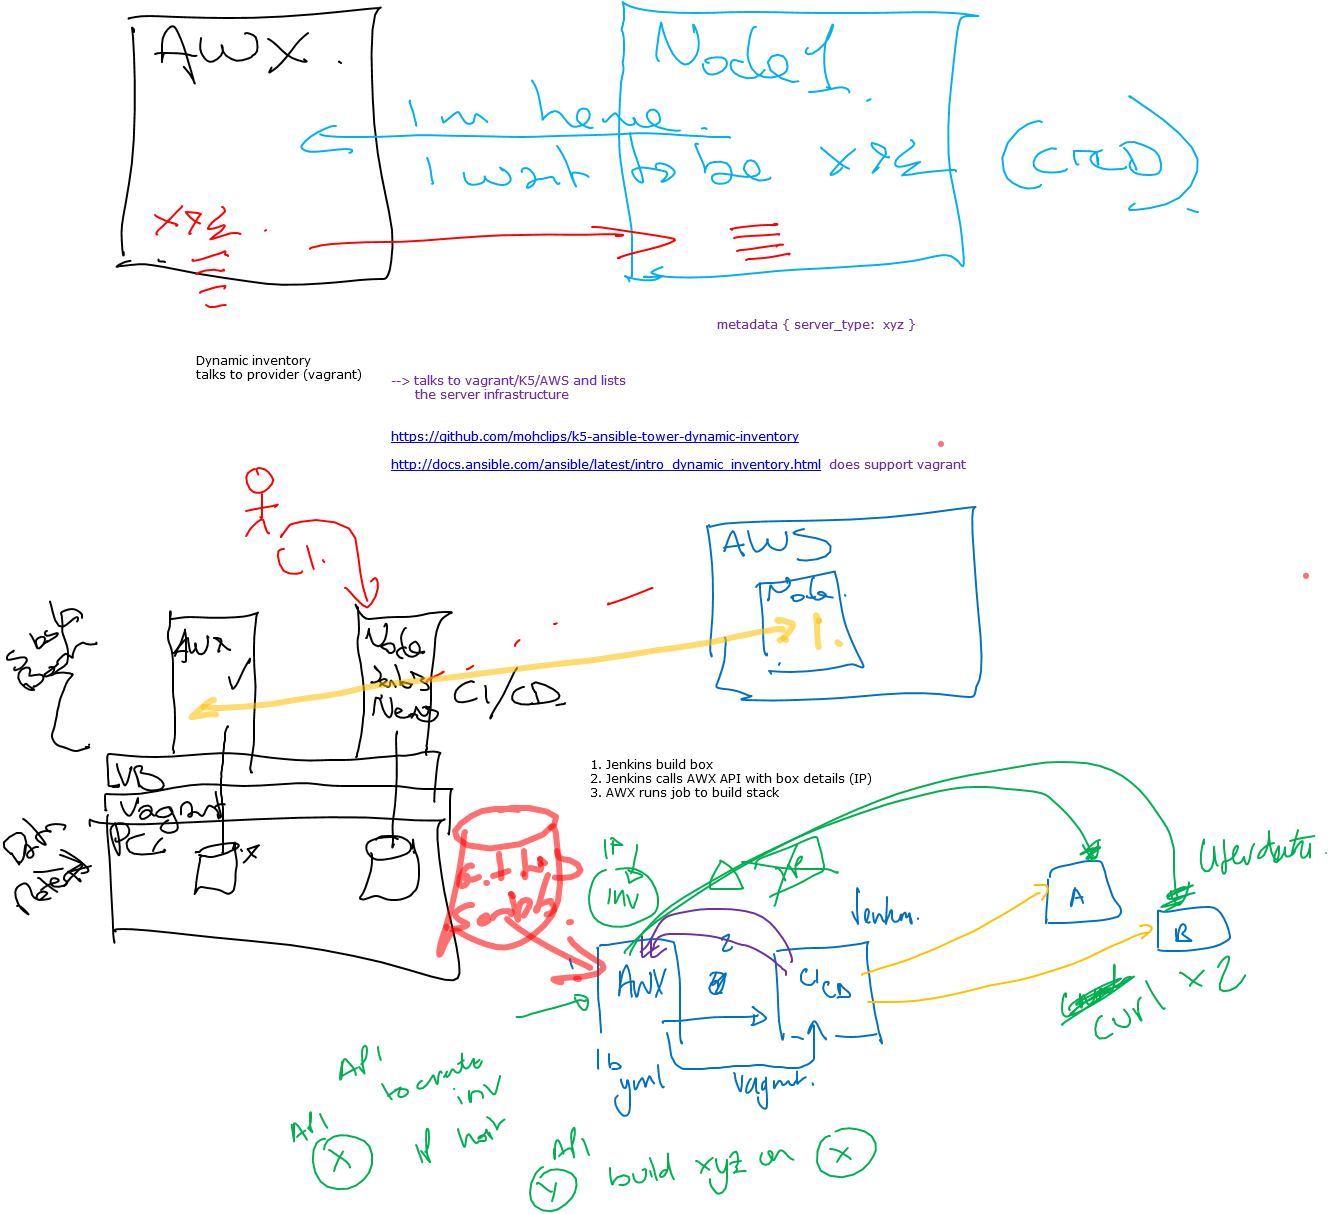 AWX.
Node 1.
I'm here.
I want to be xyz
(CICD)
xyz.
metadata { server_type:  xyz }
Dynamic inventory
talks to provider (vagrant)
--> talks to vagrant/K5/AWS and lists
the server infrastructure
https://github.com/mohclips/k5-ansible-tower-dynamic-inventory
http://docs.ansible.com/ansible/latest/intro_dynamic_inventory.html  does support vagrant
CI.
AWS
Node.
1.
AWX
Node
CI/CD
VB
Vagrant
PC
1. Jenkins build box
2. Jenkins calls AWX API with box details (IP)
3. AWX runs job to build stack
IP
inv
Userdata.
A
B
2
AWX
CICD
curl x2
1b
yml
Vagrant.
API
to create
inv
API
X
IP host
API
Y
build xyz on X